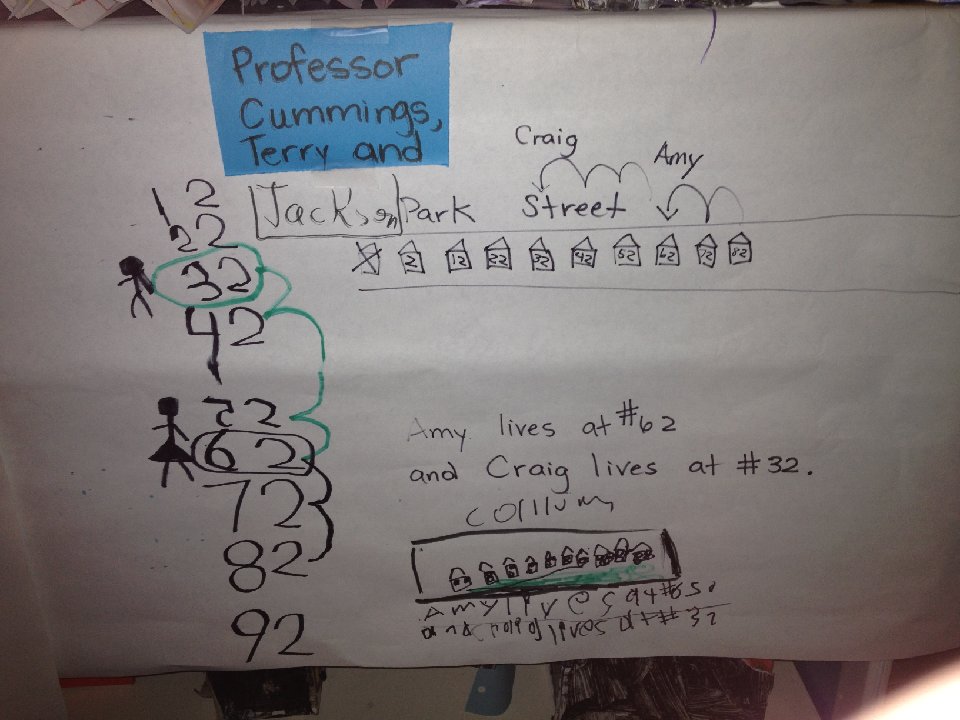 Professor
Cummings,
Terry and
Jackson Park Street
Craig
Amy
2 12 22 32 42 52 62 72 82
12
22
32
42
52
62
72
82
92
Amy lives at #62
and Craig lives at #32.
Amy lives at #
and Craig lives at # 32